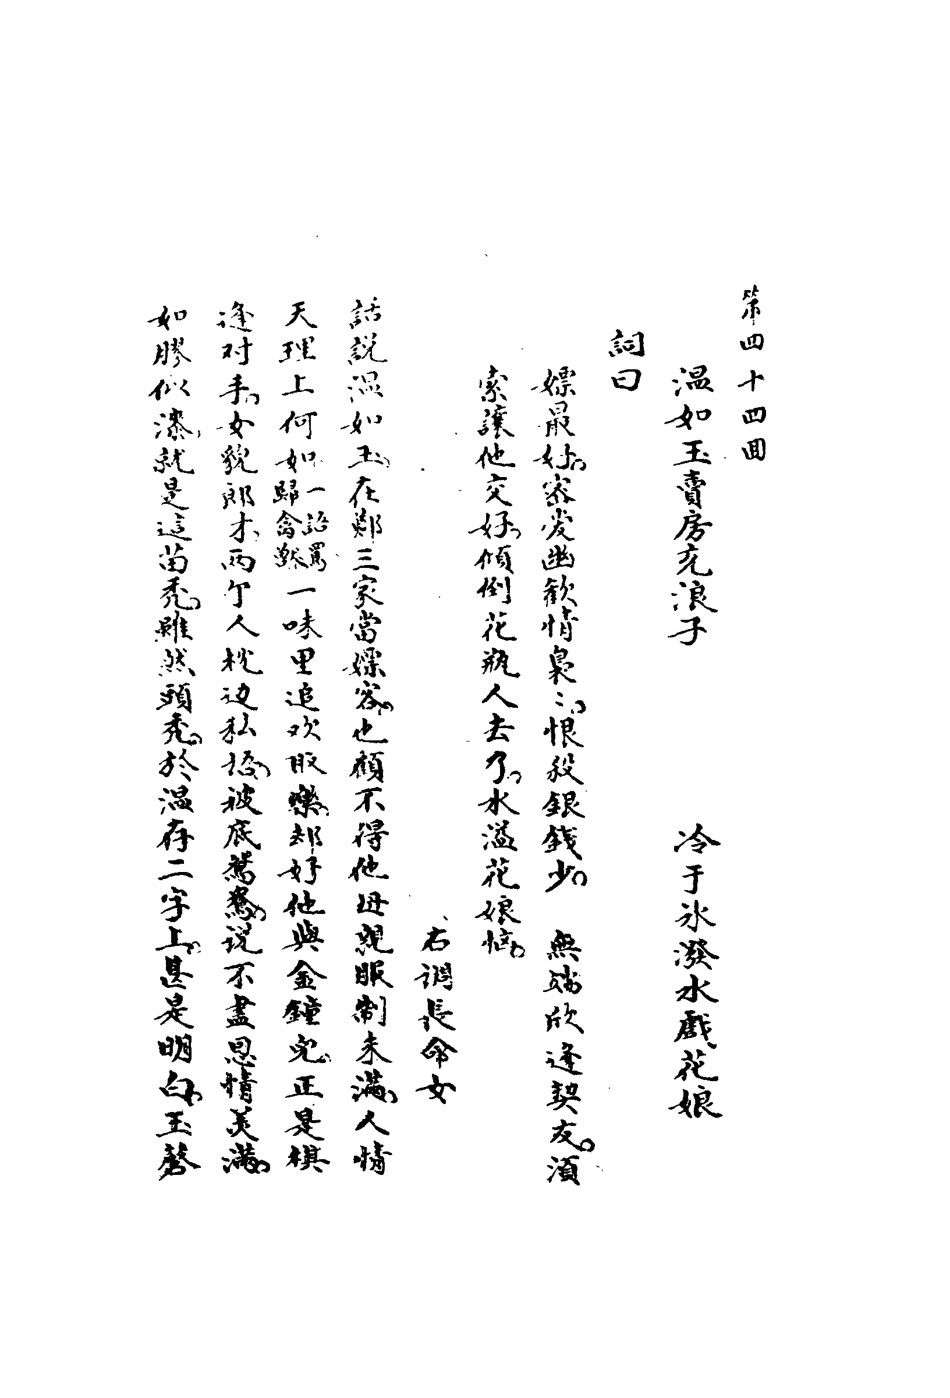 第四十四囬
溫如玉賣房充浪子　冷于氷潑水戲花娘
詞曰
嫖最好密愛幽歡情裊〻恨殺銀錢少　無端欣逢契友須
索讓他交好傾倒花瓶人去了水溢花娘惱
右調長命女
話說溫如玉在鄭三家當嫖客也顧不得他母親服制未滿人情
天理上何如一詬罵歸禽獸一味里追欢取樂却好他與金鐘兒正是棋
逢对手女貌郎才兩个人枕边私語被底鴛鴦說不盡恩情美滿
如膠似漆就是這苗禿雖然頭禿於溫存二字上甚是明白玉磬